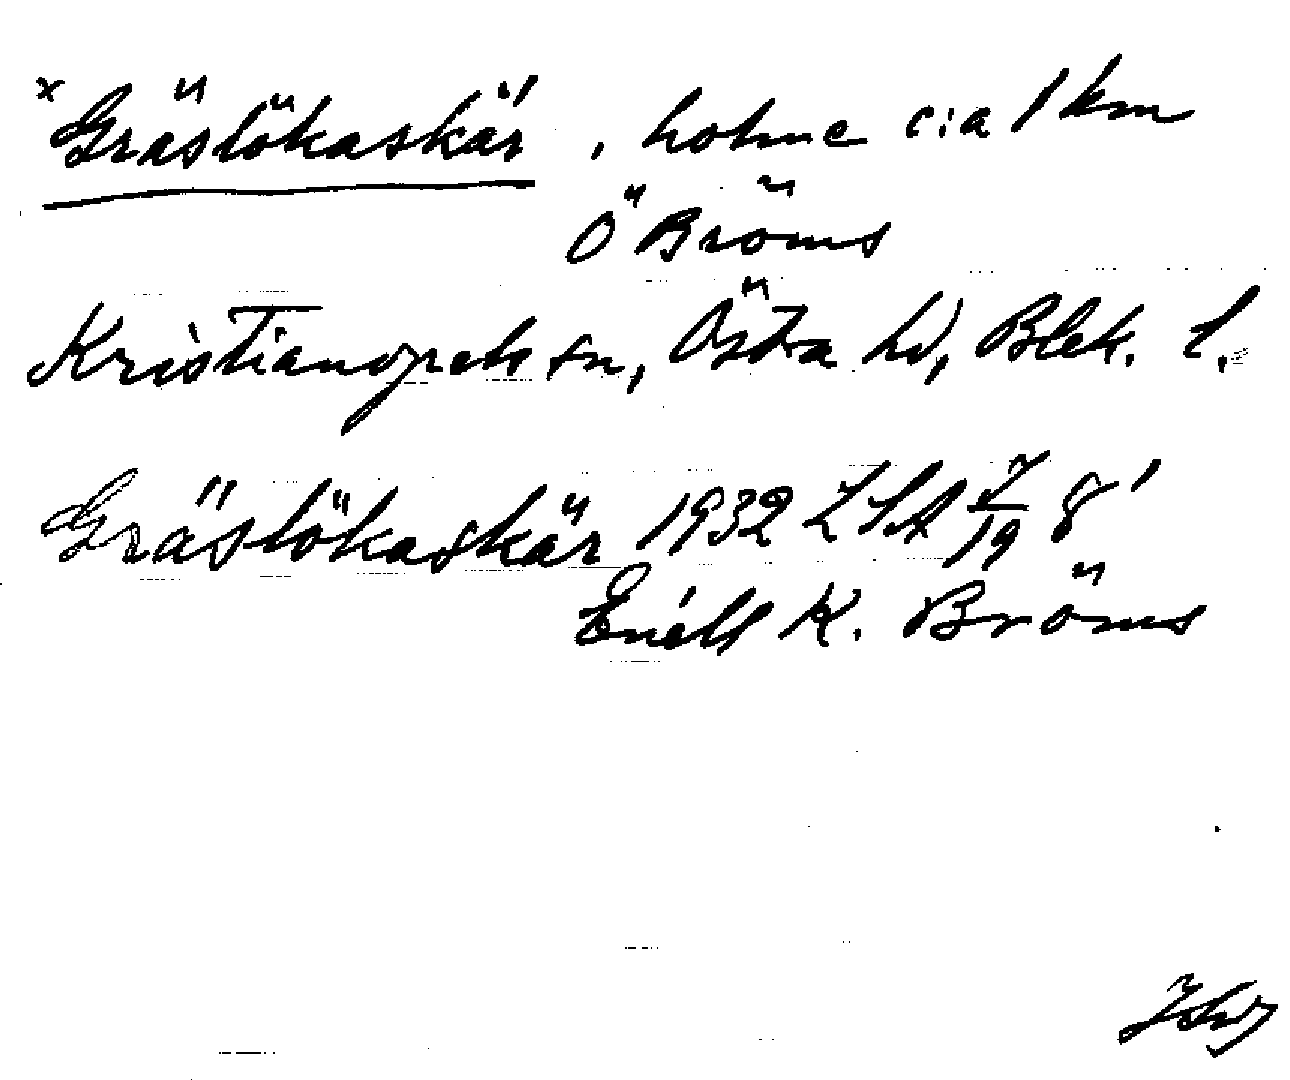 x Gräslökaskär, holme c:a 1 km
Ö Bröms
Kristianopels sn, Östra hd, Blek. l.
Gräslökaskär 1932 LSA 7/19 8'
Enéll K. Bröms